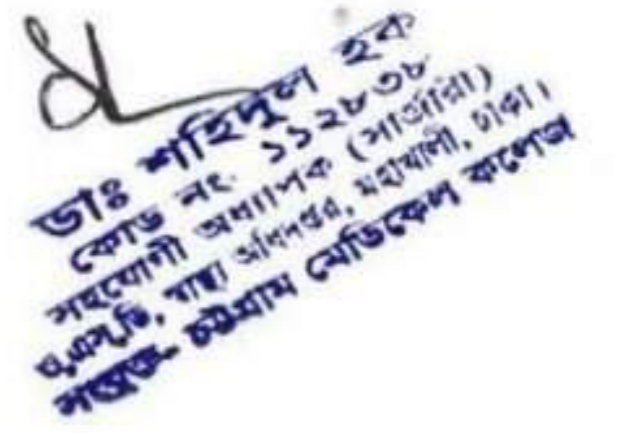 ডাঃ শহিদুল হক
কোড নং ১১২৮৩৮
সহযোগী অধ্যাপক (সার্জারী)
ও,এস,ডি, স্বাস্থ্য অধিদপ্তর, মহাখালী, ঢাকা।
চট্টগ্রাম মেডিকেল কলেজ